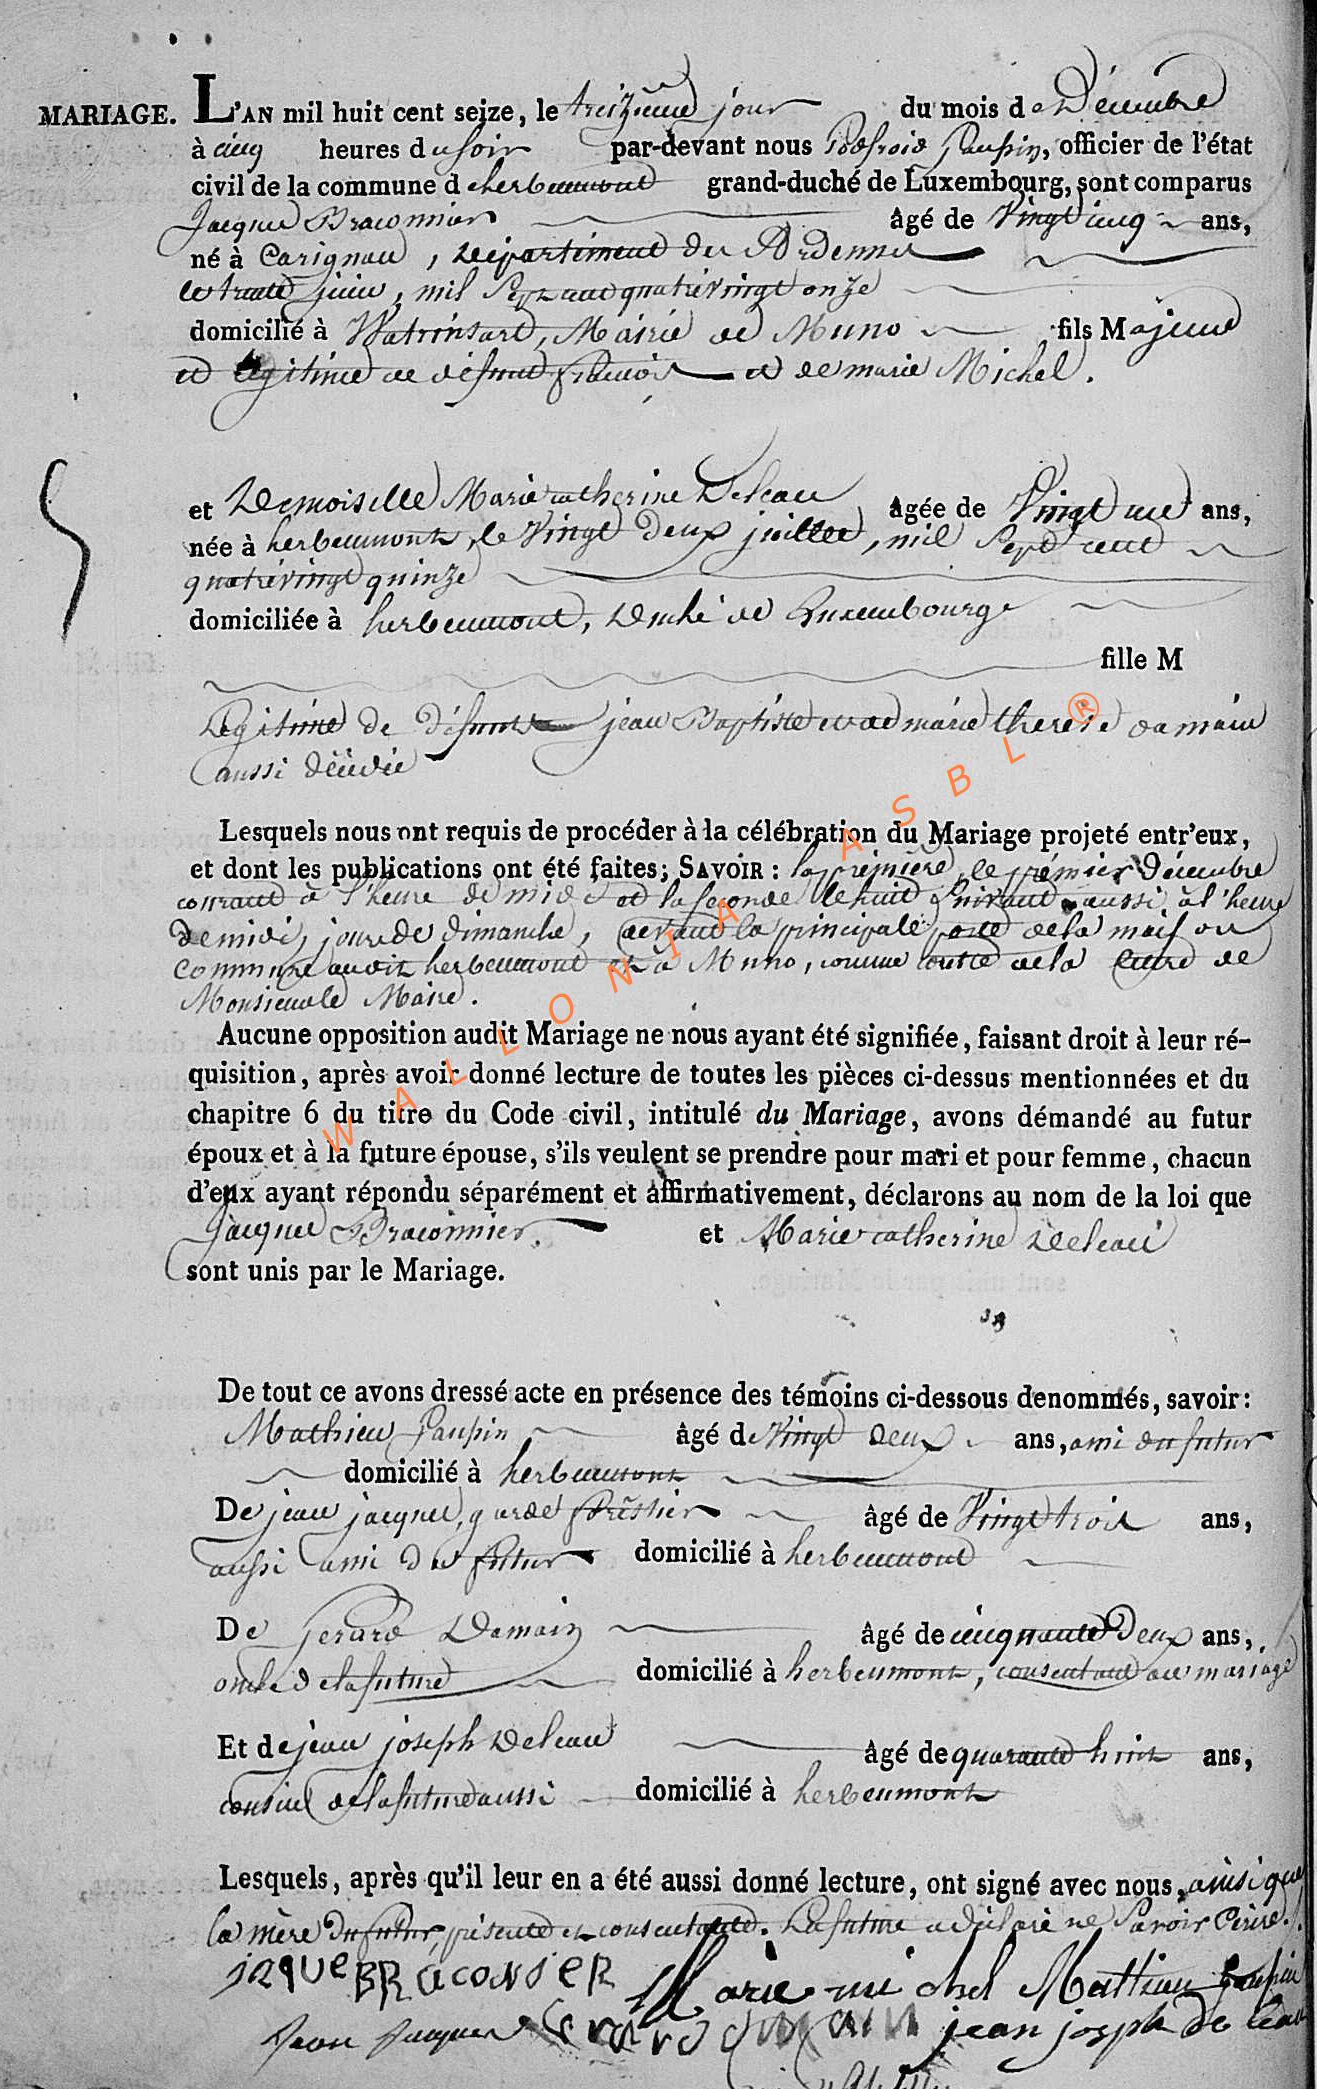 MARIAGE. L'AN mil huit cent seize, le treizième jour du mois de Décembre
à cinq heures du soir par-devant nous Godefroid Paupin, officier de l'état
civil de la commune d'herbeumont grand-duché de Luxembourg, sont comparus
Jacques Braconnier âgé de Vingt cinq ans,
né à Carignan, Département des Ardennes
le trente juin, mil Sept cent quatrevingt onze
domicilié à Watrinsart, Mairie de Muno fils Majeur
et légitime de défunt françois et de marie Michel.
et Demoiselle Marie catherine Deleau âgée de Vingt une ans,
née à herbeumont, le Vingt Deux juillet, mil Sept cent
quatrevingt quinze
domiciliée à herbeumont, Duché de Luxembourg
fille M
Légitime de défunts jean Baptiste et de marie therese damain
aussi décédée
Lesquels nous ont requis de procéder à la célébration du Mariage projeté entr'eux,
et dont les publications ont été faites; SAVOIR : la première, le premier Décembre
courant à l'heure de midi et la seconde le huit Suivant aussi à l'heure
de midi, jour de dimanche, devant la principale porte de la maison
commune audit herbeumont et à Muno, comme conste de la lettre de
Monsieur le Maire.
Aucune opposition audit Mariage ne nous ayant été signifiée, faisant droit à leur ré-
quisition, après avoir donné lecture de toutes les pièces ci-dessus mentionnées et du
chapitre 6 du titre du Code civil, intitulé du Mariage, avons démandé au futur
époux et à la future épouse, s'ils veulent se prendre pour mari et pour femme, chacun
d'eux ayant répondu séparément et affirmativement, déclarons au nom de la loi que
Jacques Braconnier. et Marie catherine Deleau
sont unis par le Mariage.
De tout ce avons dressé acte en présence des témoins ci-dessous denommés, savoir:
Mathieu Paupin âgé de Vingt Deux ans, ami du futur
domicilié à herbeumont
De jean jacques, garde forestier âgé de Vingt trois ans,
aussi ami du futur domicilié à herbeumont
De Gerard Damain âgé de cinquante Deux ans,
oncle de la future domicilié à herbeumont, consentant au mariage
Et de jean joseph Deleau âgé de quarante huit ans,
cousin de la future aussi domicilié à herbeumont
Lesquels, après qu'il leur en a été aussi donné lecture, ont signé avec nous, ainsi que
la mère du futur, présente et consentante. La future a déclaré ne Savoir écrire.
jaque BRaconieR Marie michel Mathieu Paupin
Jean Jacques Gerard damain jean joseph de leau
WALLONIA ASBL ®